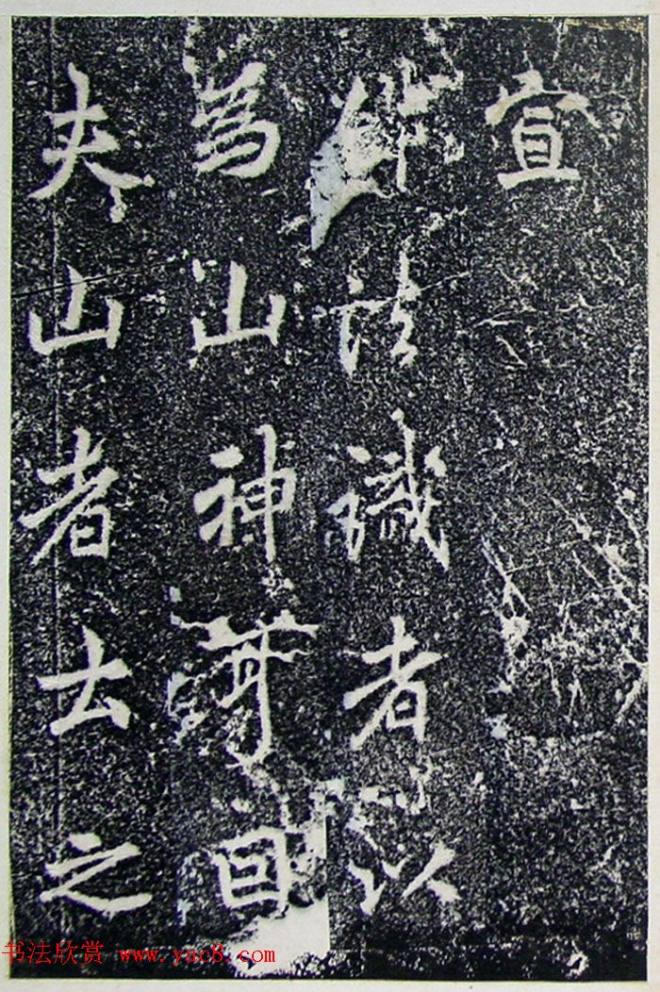 宣
識者以
為山神
夫山者士之
书法欣赏 www.yac8.com